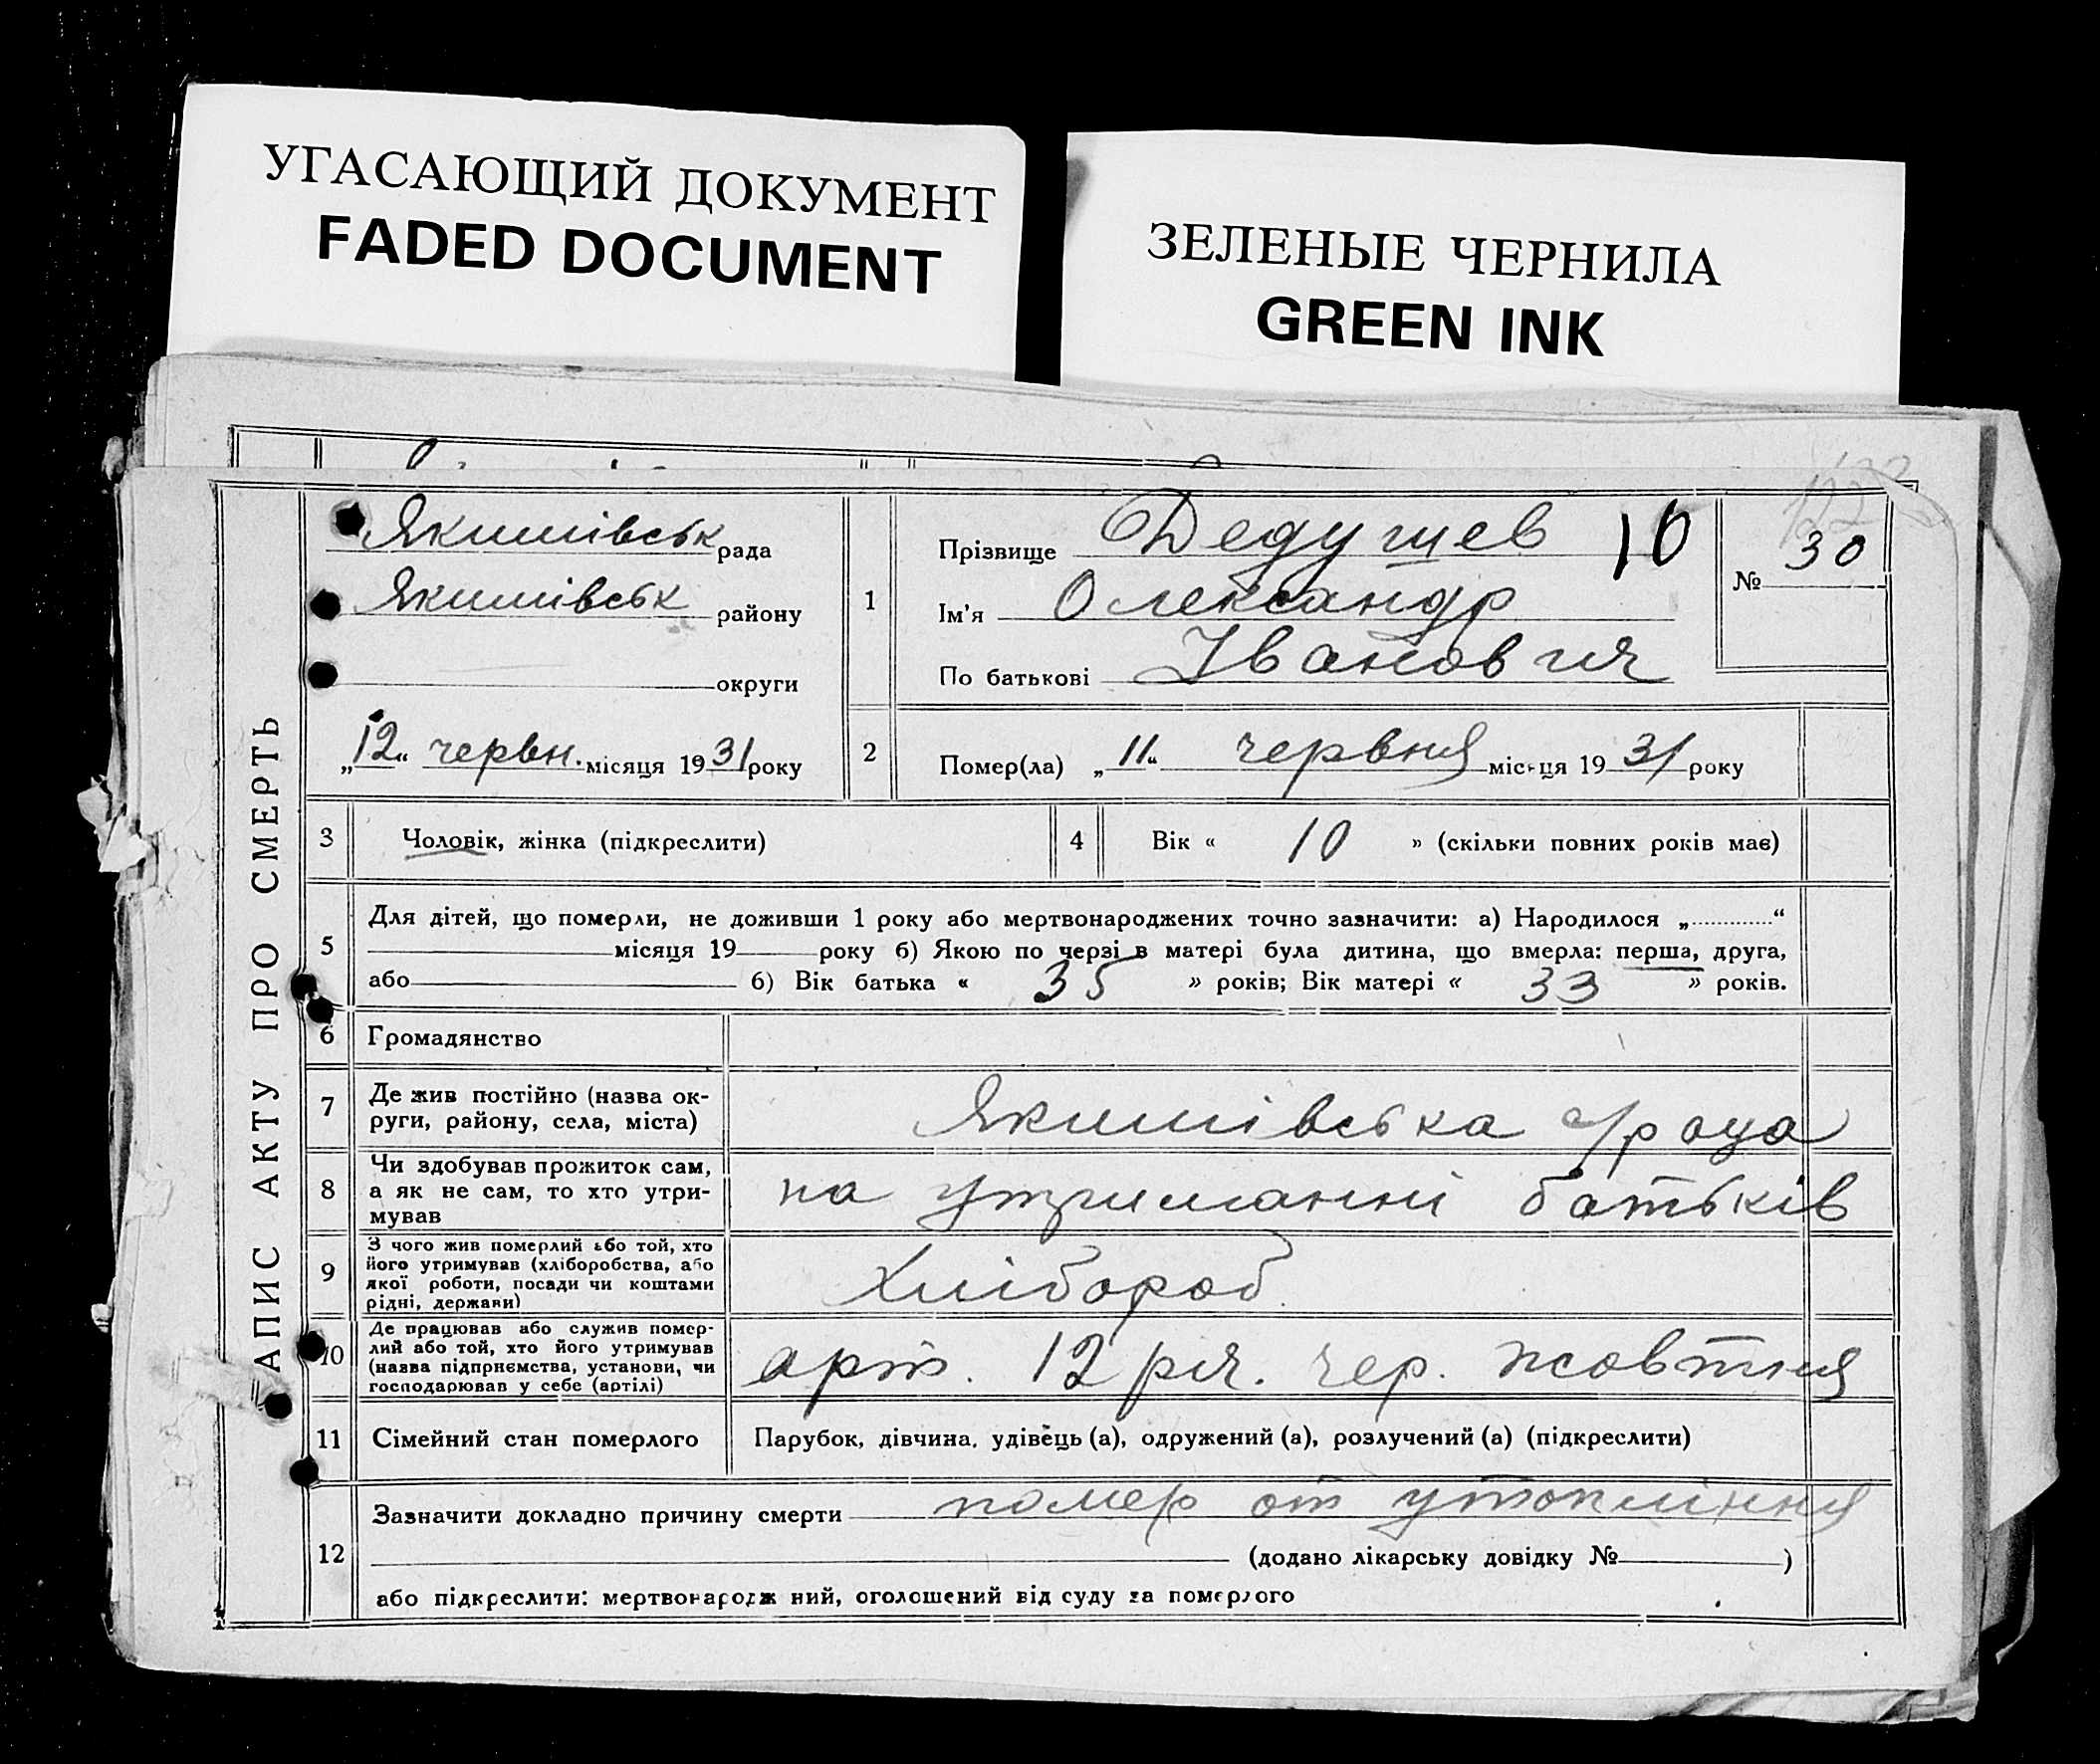 УГАСАЮЩИЙ ДОКУМЕНТ
FADED DOCUMENT
ЗЕЛЕНЫЕ ЧЕРНИЛА
GREEN INK
АПИС АКТУ ПРО СМЕРТЬ
Якимівськ рада
Якимівськ району
округи
„12“ червн. місяця 1931 року
1
Прізвище Дедушев 10
Ім'я Олександр
По батькові Іванович
№ 30
2
Помер(ла) „11“ червня місяця 1931 року
3
Чоловік, жінка (підкреслити)
4
Вік « 10 » (скільки повних років має)
5
Для дітей, що померли, не доживши 1 року або мертвонароджених точно зазначити: а) Народилося „............“
місяця 19 року б) Якою по черзі в матері була дитина, що вмерла: перша, друга,
або б) Вік батька « 35 » років; Вік матері « 33 » років.
6
Громадянство
7
Де жив постійно (назва ок-
руги, району, села, міста)
Якимівська
8
Чи здобував прожиток сам,
а як не сам, то хто утри-
мував
на утриманні батьків
9
З чого жив померлий або той, хто
його утримував (хліборобства, або
якої роботи, посади чи коштами
рідні, держави)
Хлібороб
10
Де працював або служив помер-
лий або той, хто його утримував
(назва підприємства, установи, чи
господарював у себе (артілі)
арт. 12 річ. чер. жовтня
11
Сімейний стан померлого
Парубок, дівчина, удівець (а), одружений (а), розлучений (а) (підкреслити)
12
Зазначити докладно причину смерти помер от утопління
(додано лікарську довідку № )
або підкреслити: мертвонародж ний, оголошений від суду за померлого